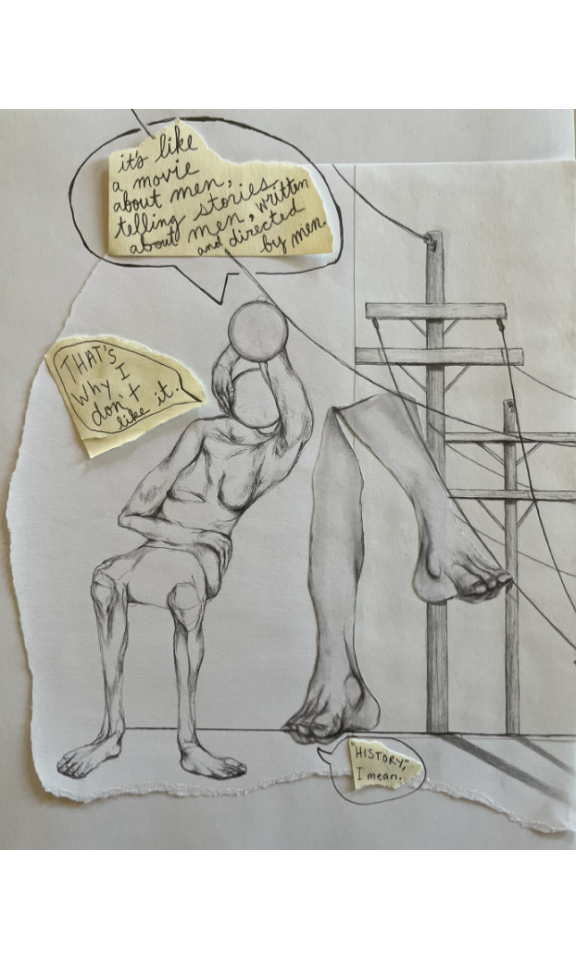 it's like
a movie
about men,
telling stories,
about men, written
and directed
by men.
THAT'S
why I
don't
like it.
"HISTORY,"
I mean.